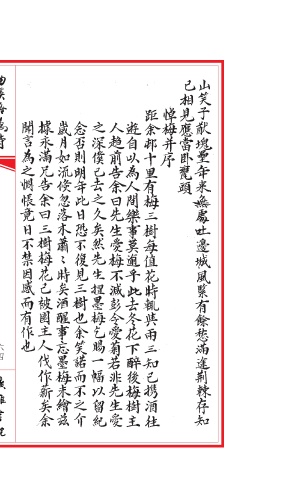 山笑予猷塊壘年來無處吐邊城風緊有餘愁滿逢荆棘存知
己相見應當卧甕頭
悼梅并序
距余邨十里有梅三樹每值花時輒與兩三知己携酒往
遊自以為人間樂事莫逾乎此去冬花下醉後梅樹主
人趨前告余曰先生愛梅不減彭令愛菊若非先生愛
之深僕已去之久矣然先生擅墨梅乞賜一幅以留紀
念否則明年此日恐不復見三樹也余笑諾而不之介
歲月如流倏忽落木蕭蕭時矣酒醒事忘墨梅未繪茲
據永滿兄告余曰三樹梅花已被園主人伐作薪矣余
聞言為之惆悵竟日不禁因感而有作也